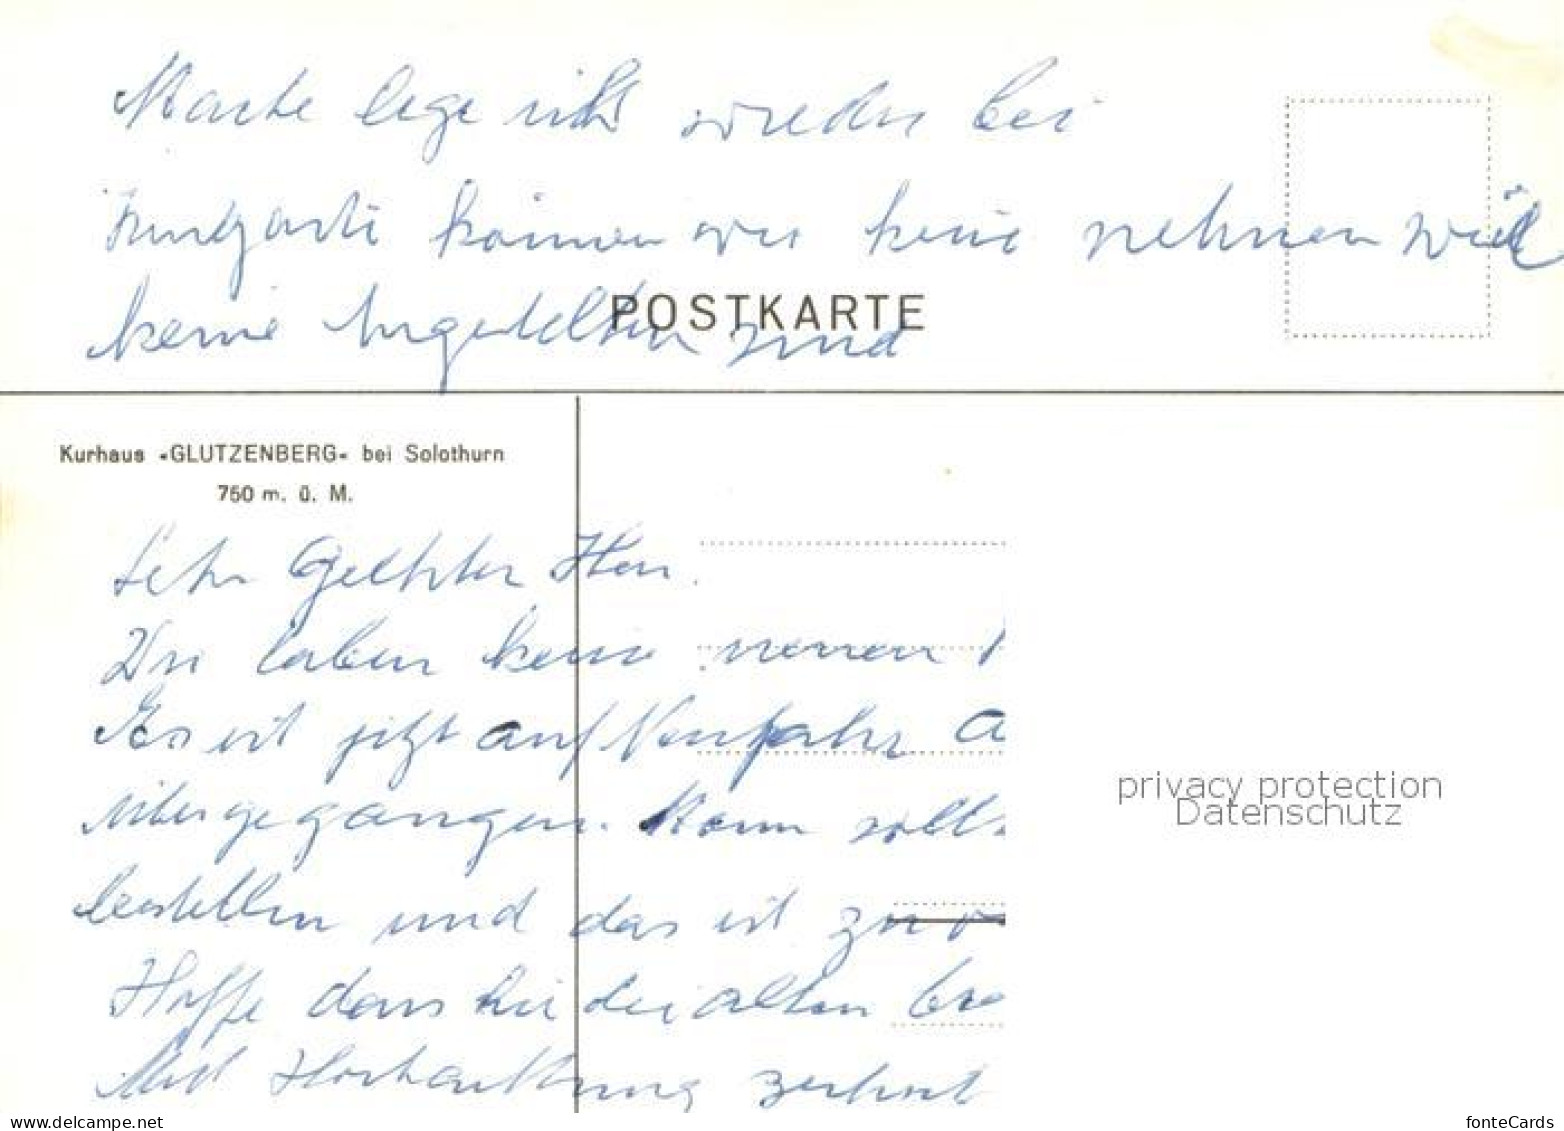 Marke lege ich wieder bei
können wir keine nehmen weil
keine Angestellten sind
POSTKARTE
Kurhaus «GLUTZENBERG« bei Solothurn
750 m. ü. M.
Sehr Geehrter Herr.
Wir haben keine neuen
Es ist jetzt auf Neujahr a
übergegangen. Kann
bestellen und das ist
Hoffe dass Sie die alten
Mit Hochachtung zeichnet
privacy protection
Datenschutz
www.delcampe.net
fonteCards